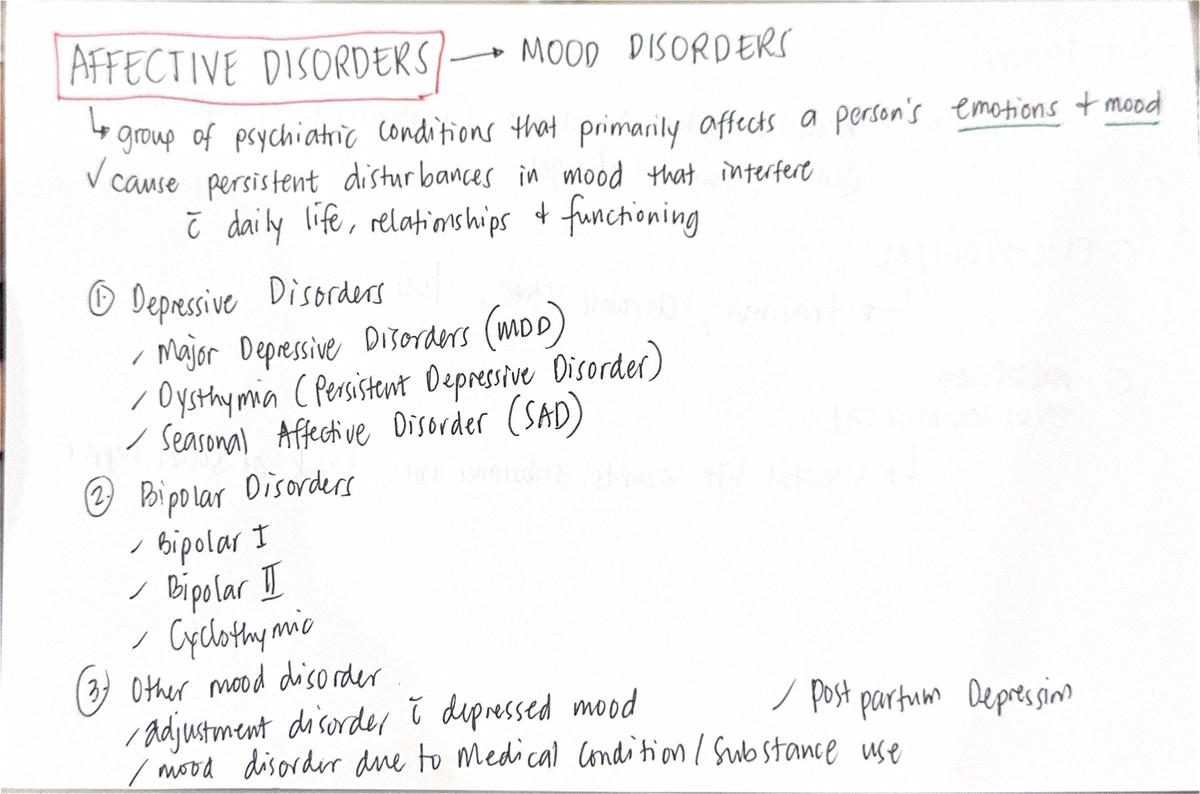 AFFECTIVE DISORDERS → MOOD DISORDERS
↳ group of psychiatric conditions that primarily affects a person's emotions + mood
✓ cause persistent disturbances in mood that interfere
c̄ daily life, relationships & functioning
① Depressive Disorders
/ Major Depressive Disorders (MDD)
/ Dysthymia (Persistent Depressive Disorder)
/ Seasonal Affective Disorder (SAD)
② Bipolar Disorders
/ Bipolar I
/ Bipolar II
/ Cyclothymic
③ Other mood disorder
/ adjustment disorder c̄ depressed mood / Post partum Depression
/ mood disorder due to Medical Condition / Substance use